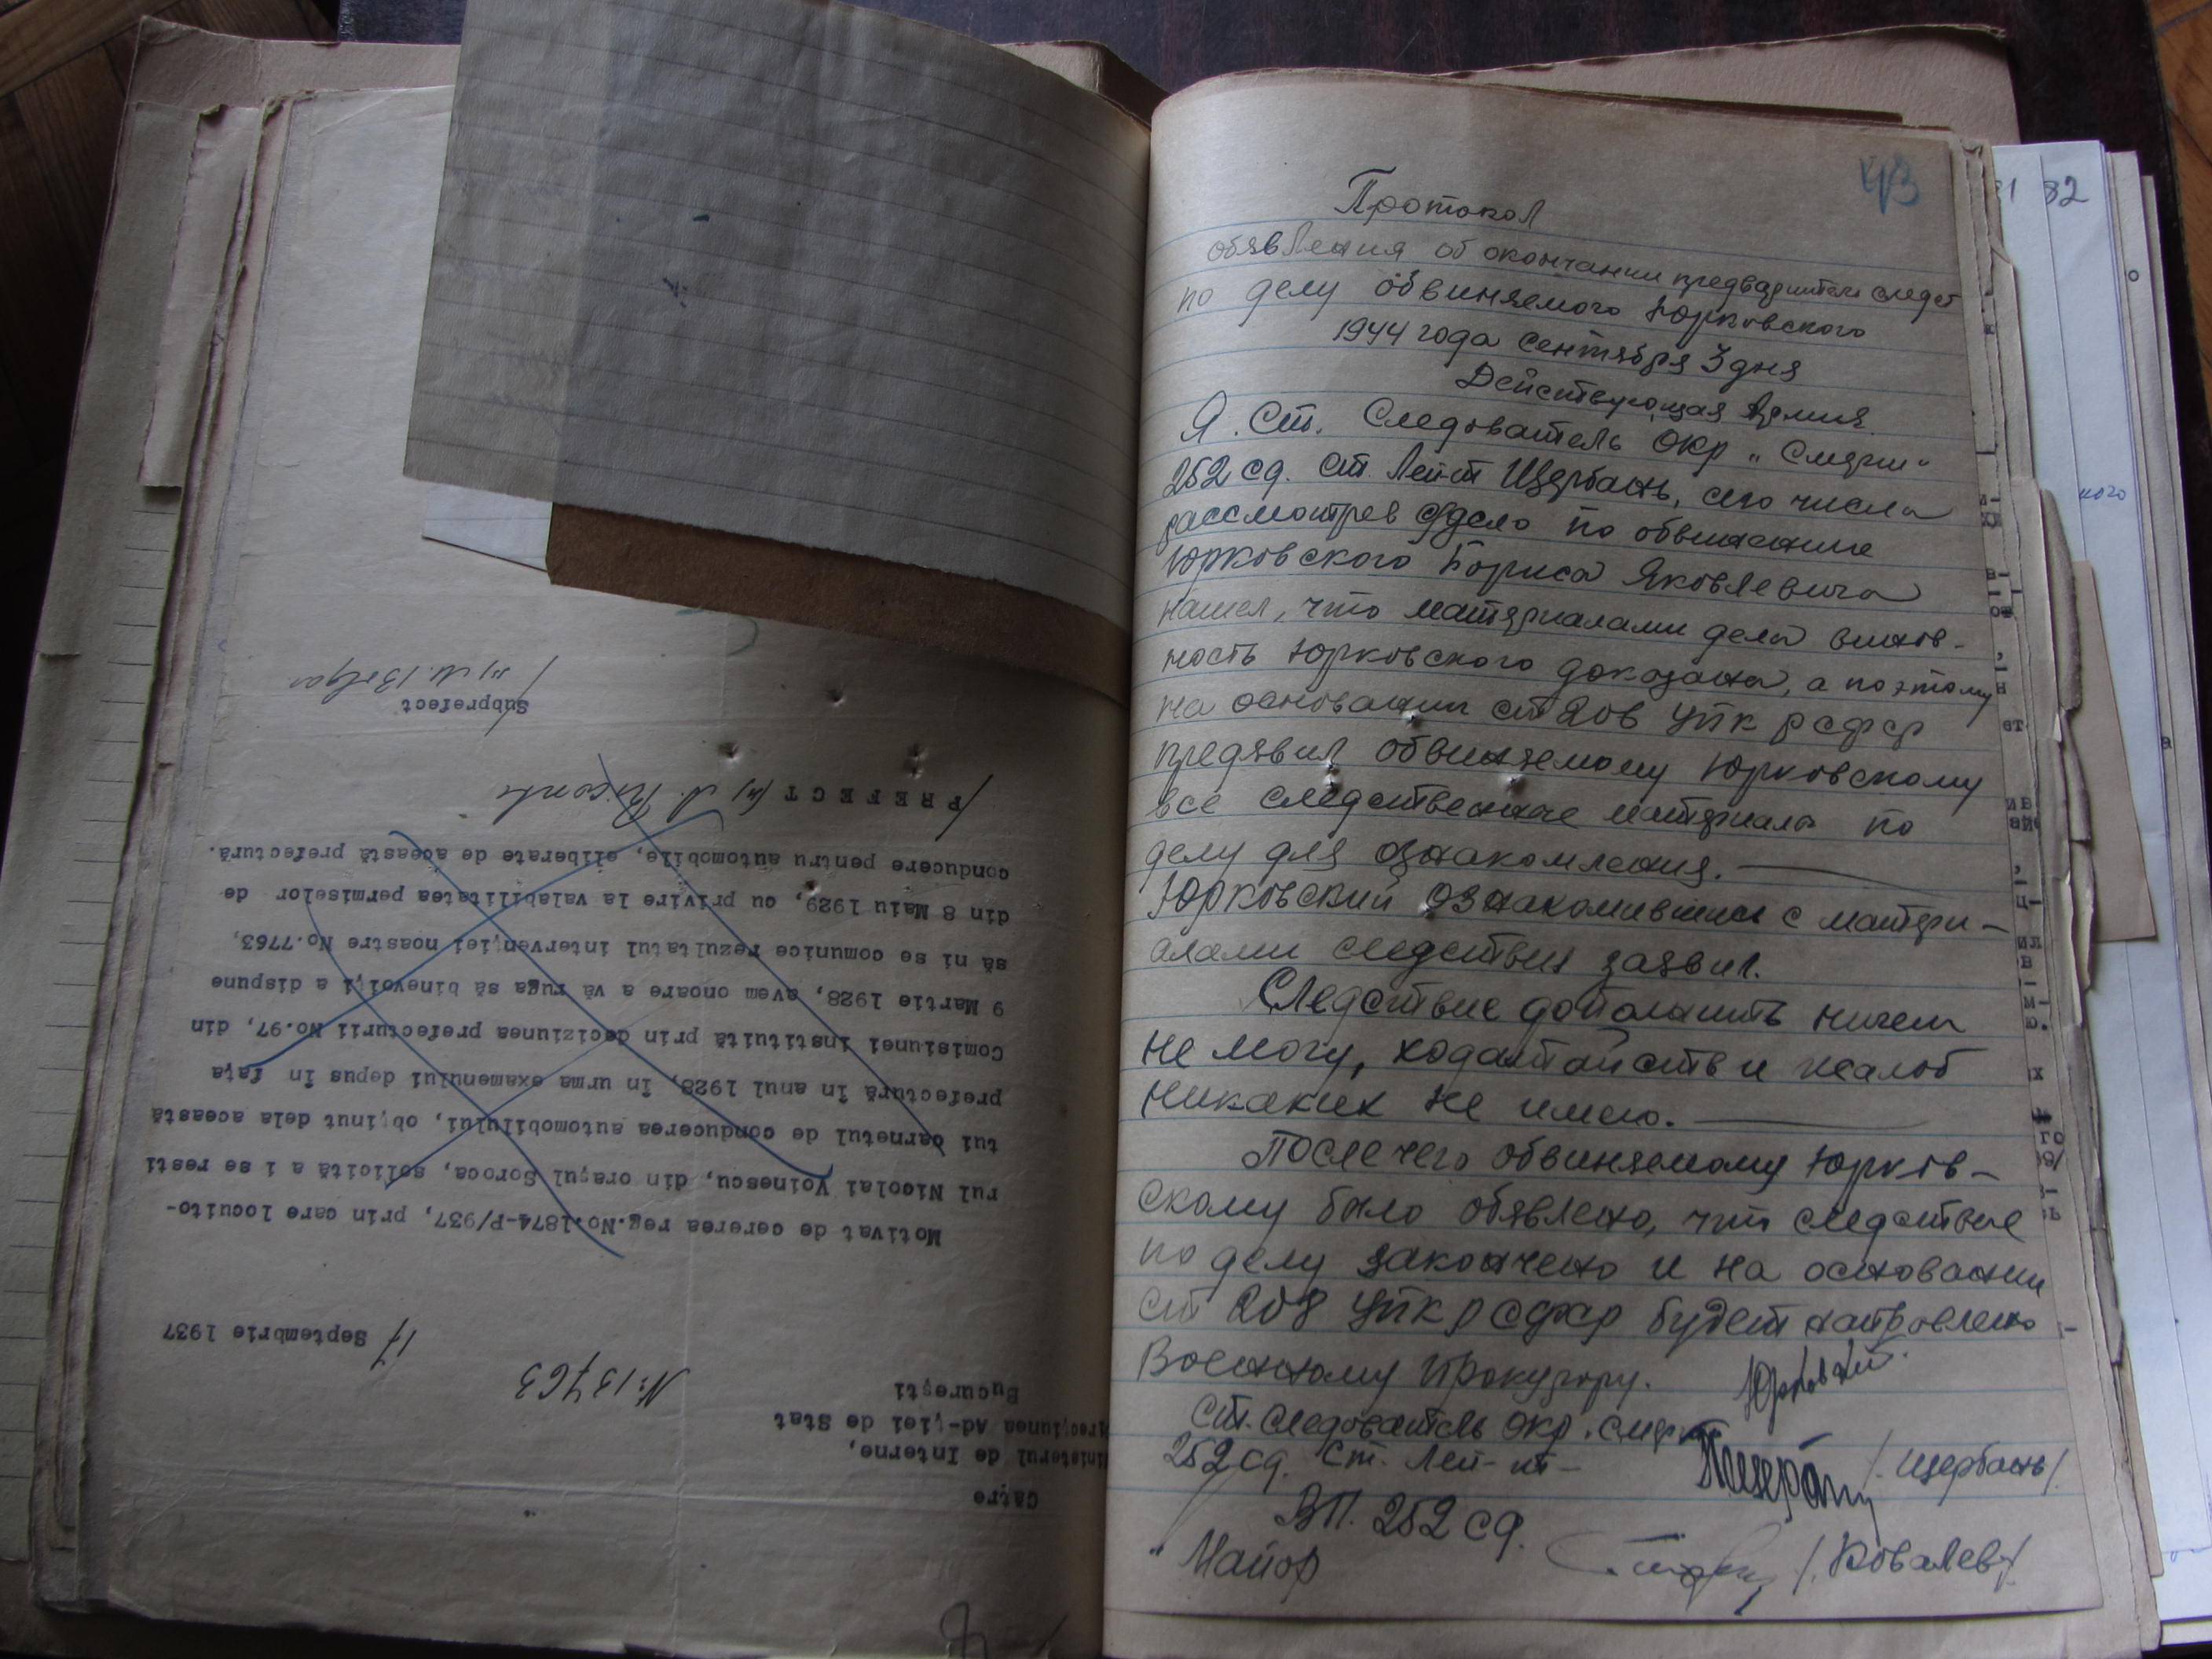 Către
Ministerul de Interne,
Direcţiunea Ad-ţiei de Stat
Bucureşti
№ 13763
17 Septembrie 1937
Motivat de cererea reg.No.1874-P/937, prin care locuito-
rul Nicolai Voinescu, din oraşul Soroca, solicită a i se resti
tui carnetul de conducerea automobilului, obţinut dela această
prefectură în anul 1928, în urma examenului depus în faţa
Comisiunei instituită prin deciziunea prefecturii No.97, din
9 Martie 1928, avem onoare a vă ruga să binevoiţi a dispune
să ni se comunice rezultatul intervenţiei noastre No.7763,
din 8 Maiu 1929, cu privire la valabilitatea permiselor de
conducere pentru automobile, eliberate de această prefectură.
PREFECT
Subprefect
43
Протокол
обявления об окончании предварительн следст
по делу обвиняемого Юрковского
1944 года Сентября 3 дня
Действующая Армия
Я. Ст. Следователь ОКР "Смерш"
252 сд. ст. Лей-т Щербань, сего числа
рассмотрев с/дело по обвинению
Юрковского Бориса Яковлевича
нашел, что материалами дела винов-
ность Юрковского доказана, а поэтому
на основании ст 206 УПК РСФСР
предявил обвиняемому Юрковскому
все следственные материалы по
делу для ознакомления.
Юрковский ознакомившись с матери-
алами следствия заявил.
Следствие дополнить ничем
не могу, ходатайств и жалоб
никаких не имею.
После чего обвиняемому Юрков-
скому было обявлено, что следствие
по делу закончено и на основании
ст 208 УПК РСФСР будет направлено
Военному Прокурору. Юрковский
ст. следователь ОКР. Смерш
252 сд. Ст. Лей-т- /Щербань/
ВП. 252 сд.
Майор /Ковалев/
82